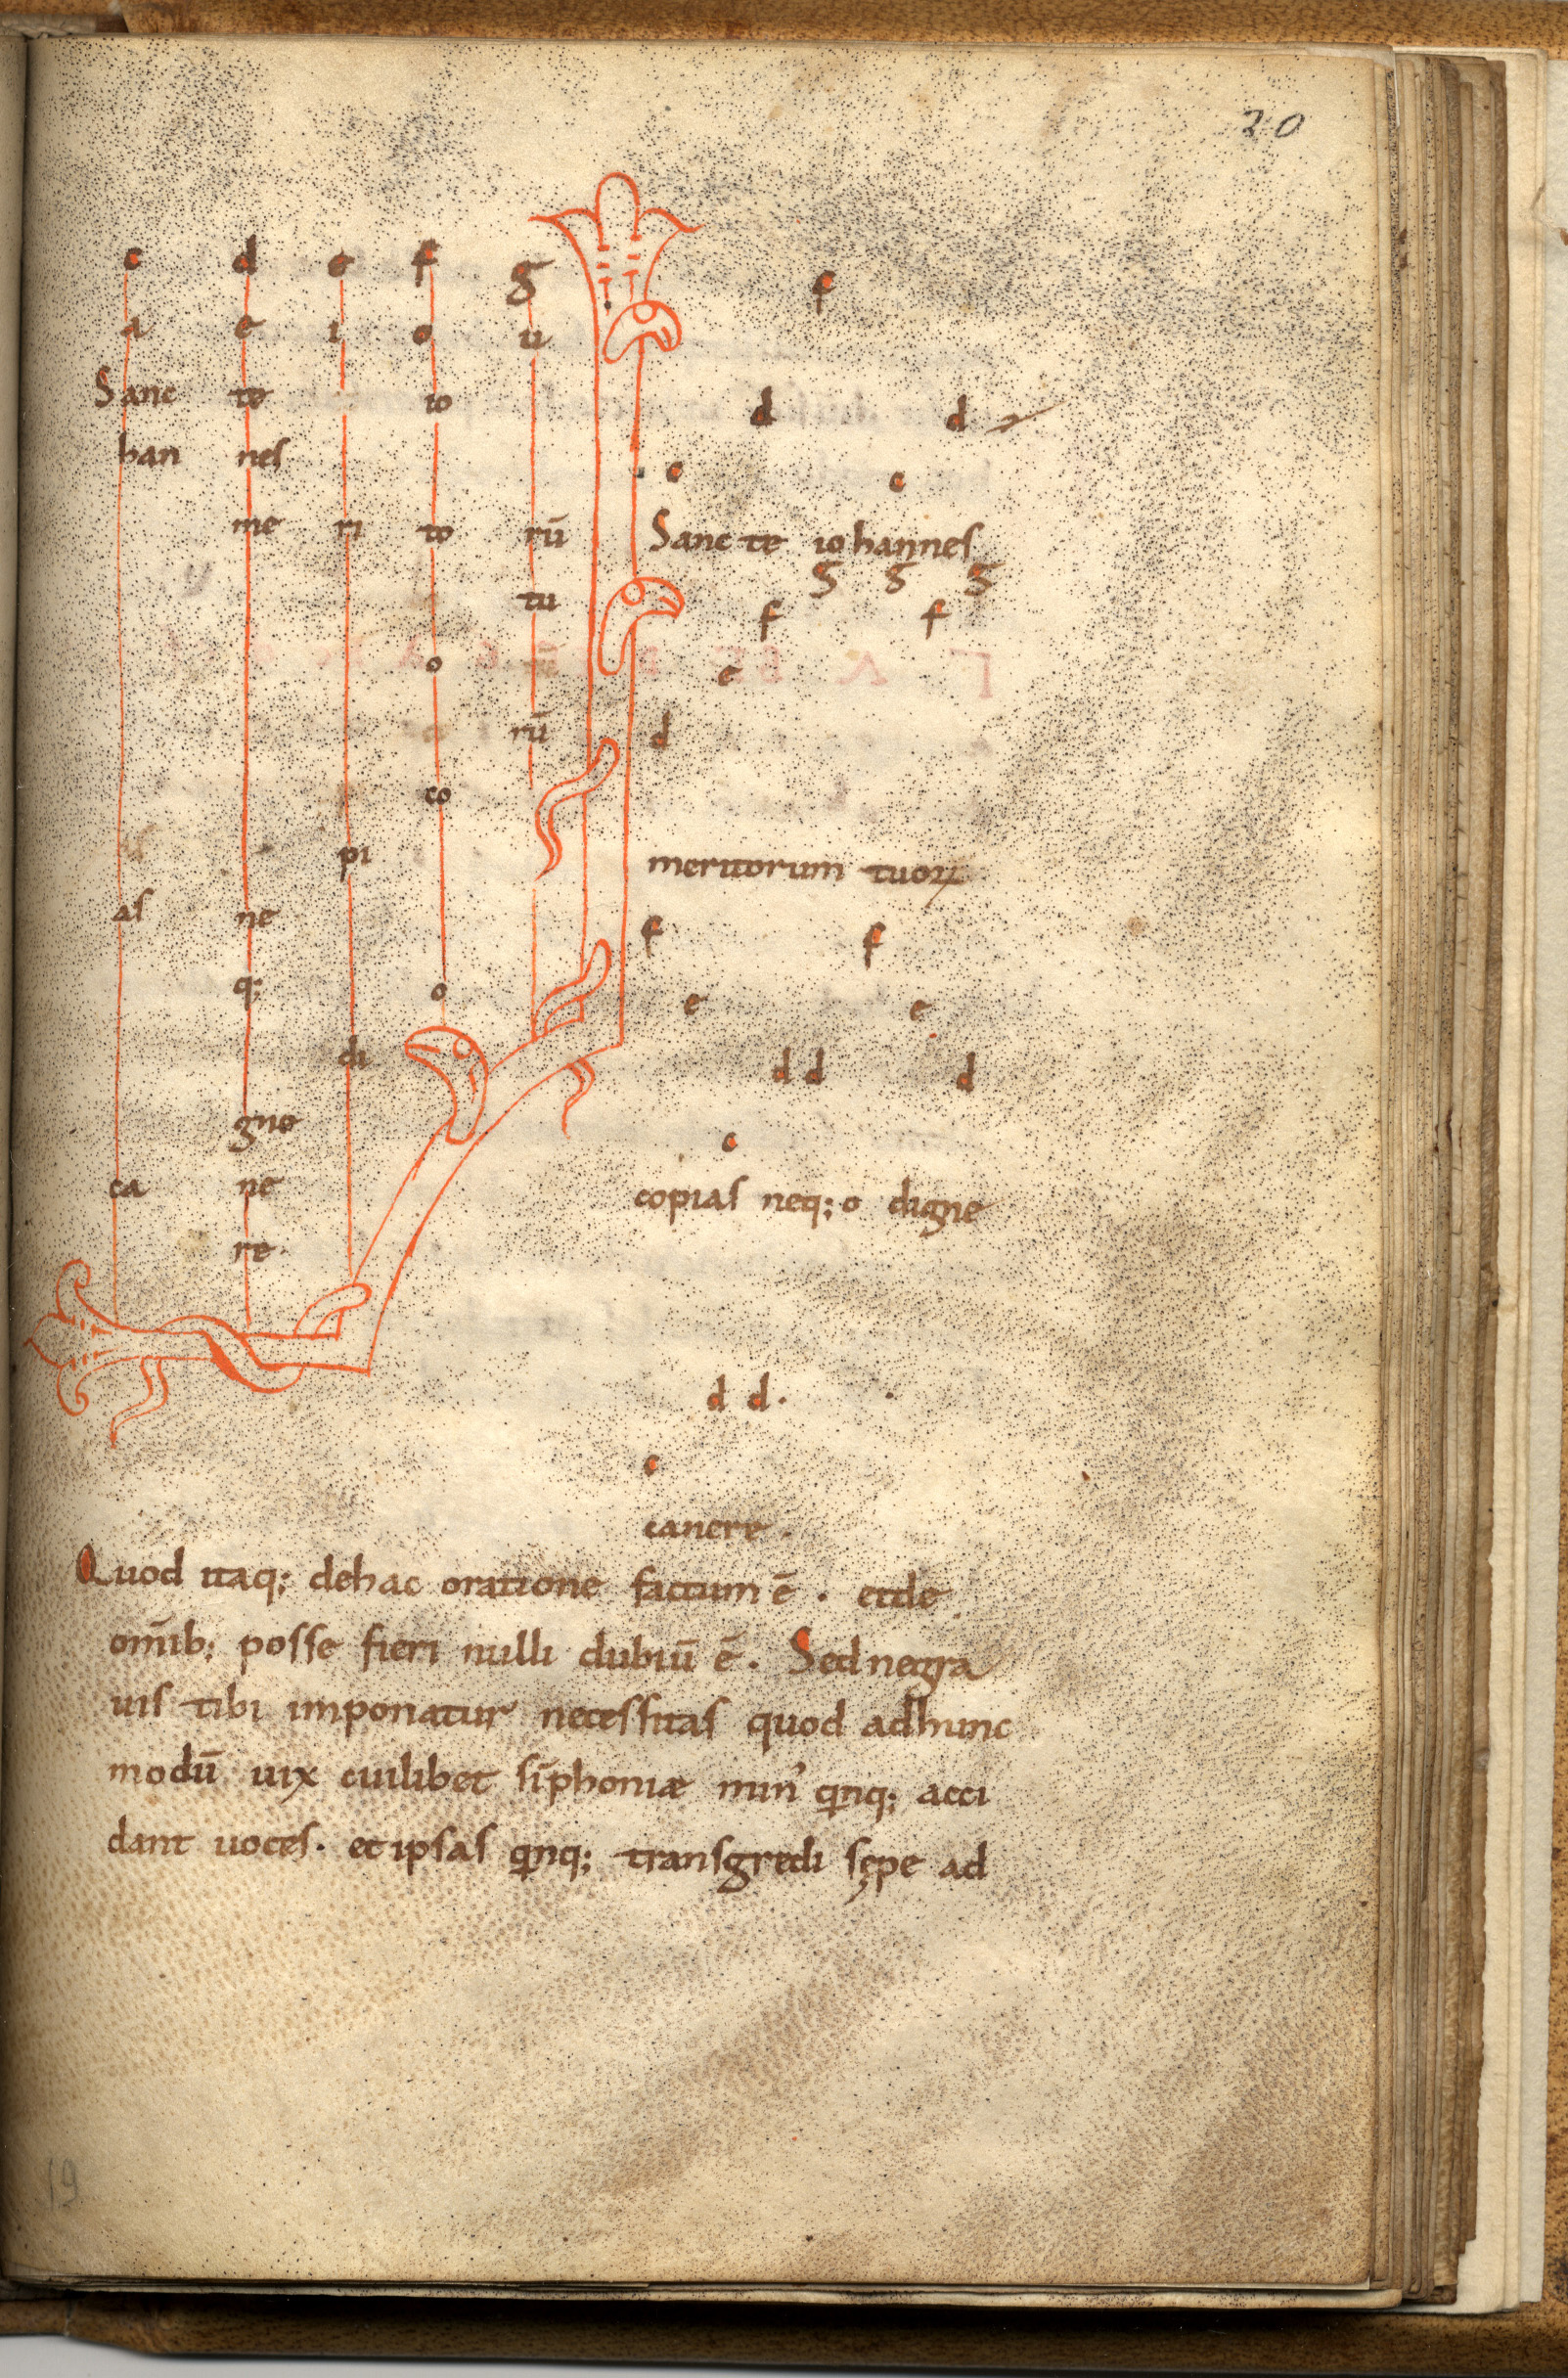 20
c d e f g
a e i o u
Sanc te io
han nes
me ri to rū
tu
o
rū
co
pi
as ne
q;
o
di
gne
ca ne
re.
f
d d
c c
Sanc te iohannes
g g g
f f
e
d
meritorum tuoꝝ
f f
e e
d d d
c
copias neq; o digne
d d.
c
canere.
Quod itaq; dehac oratione factum ē. etde
om̄ib; posse fieri nulli dubiū ē. Sed ne gra
uis tibi imponatur necessitas quod adhunc
modū uix cuilibet sīphoniæ min' qinq; acci
dant uoces. et ipsas qinq; transgredi sępe ad
19